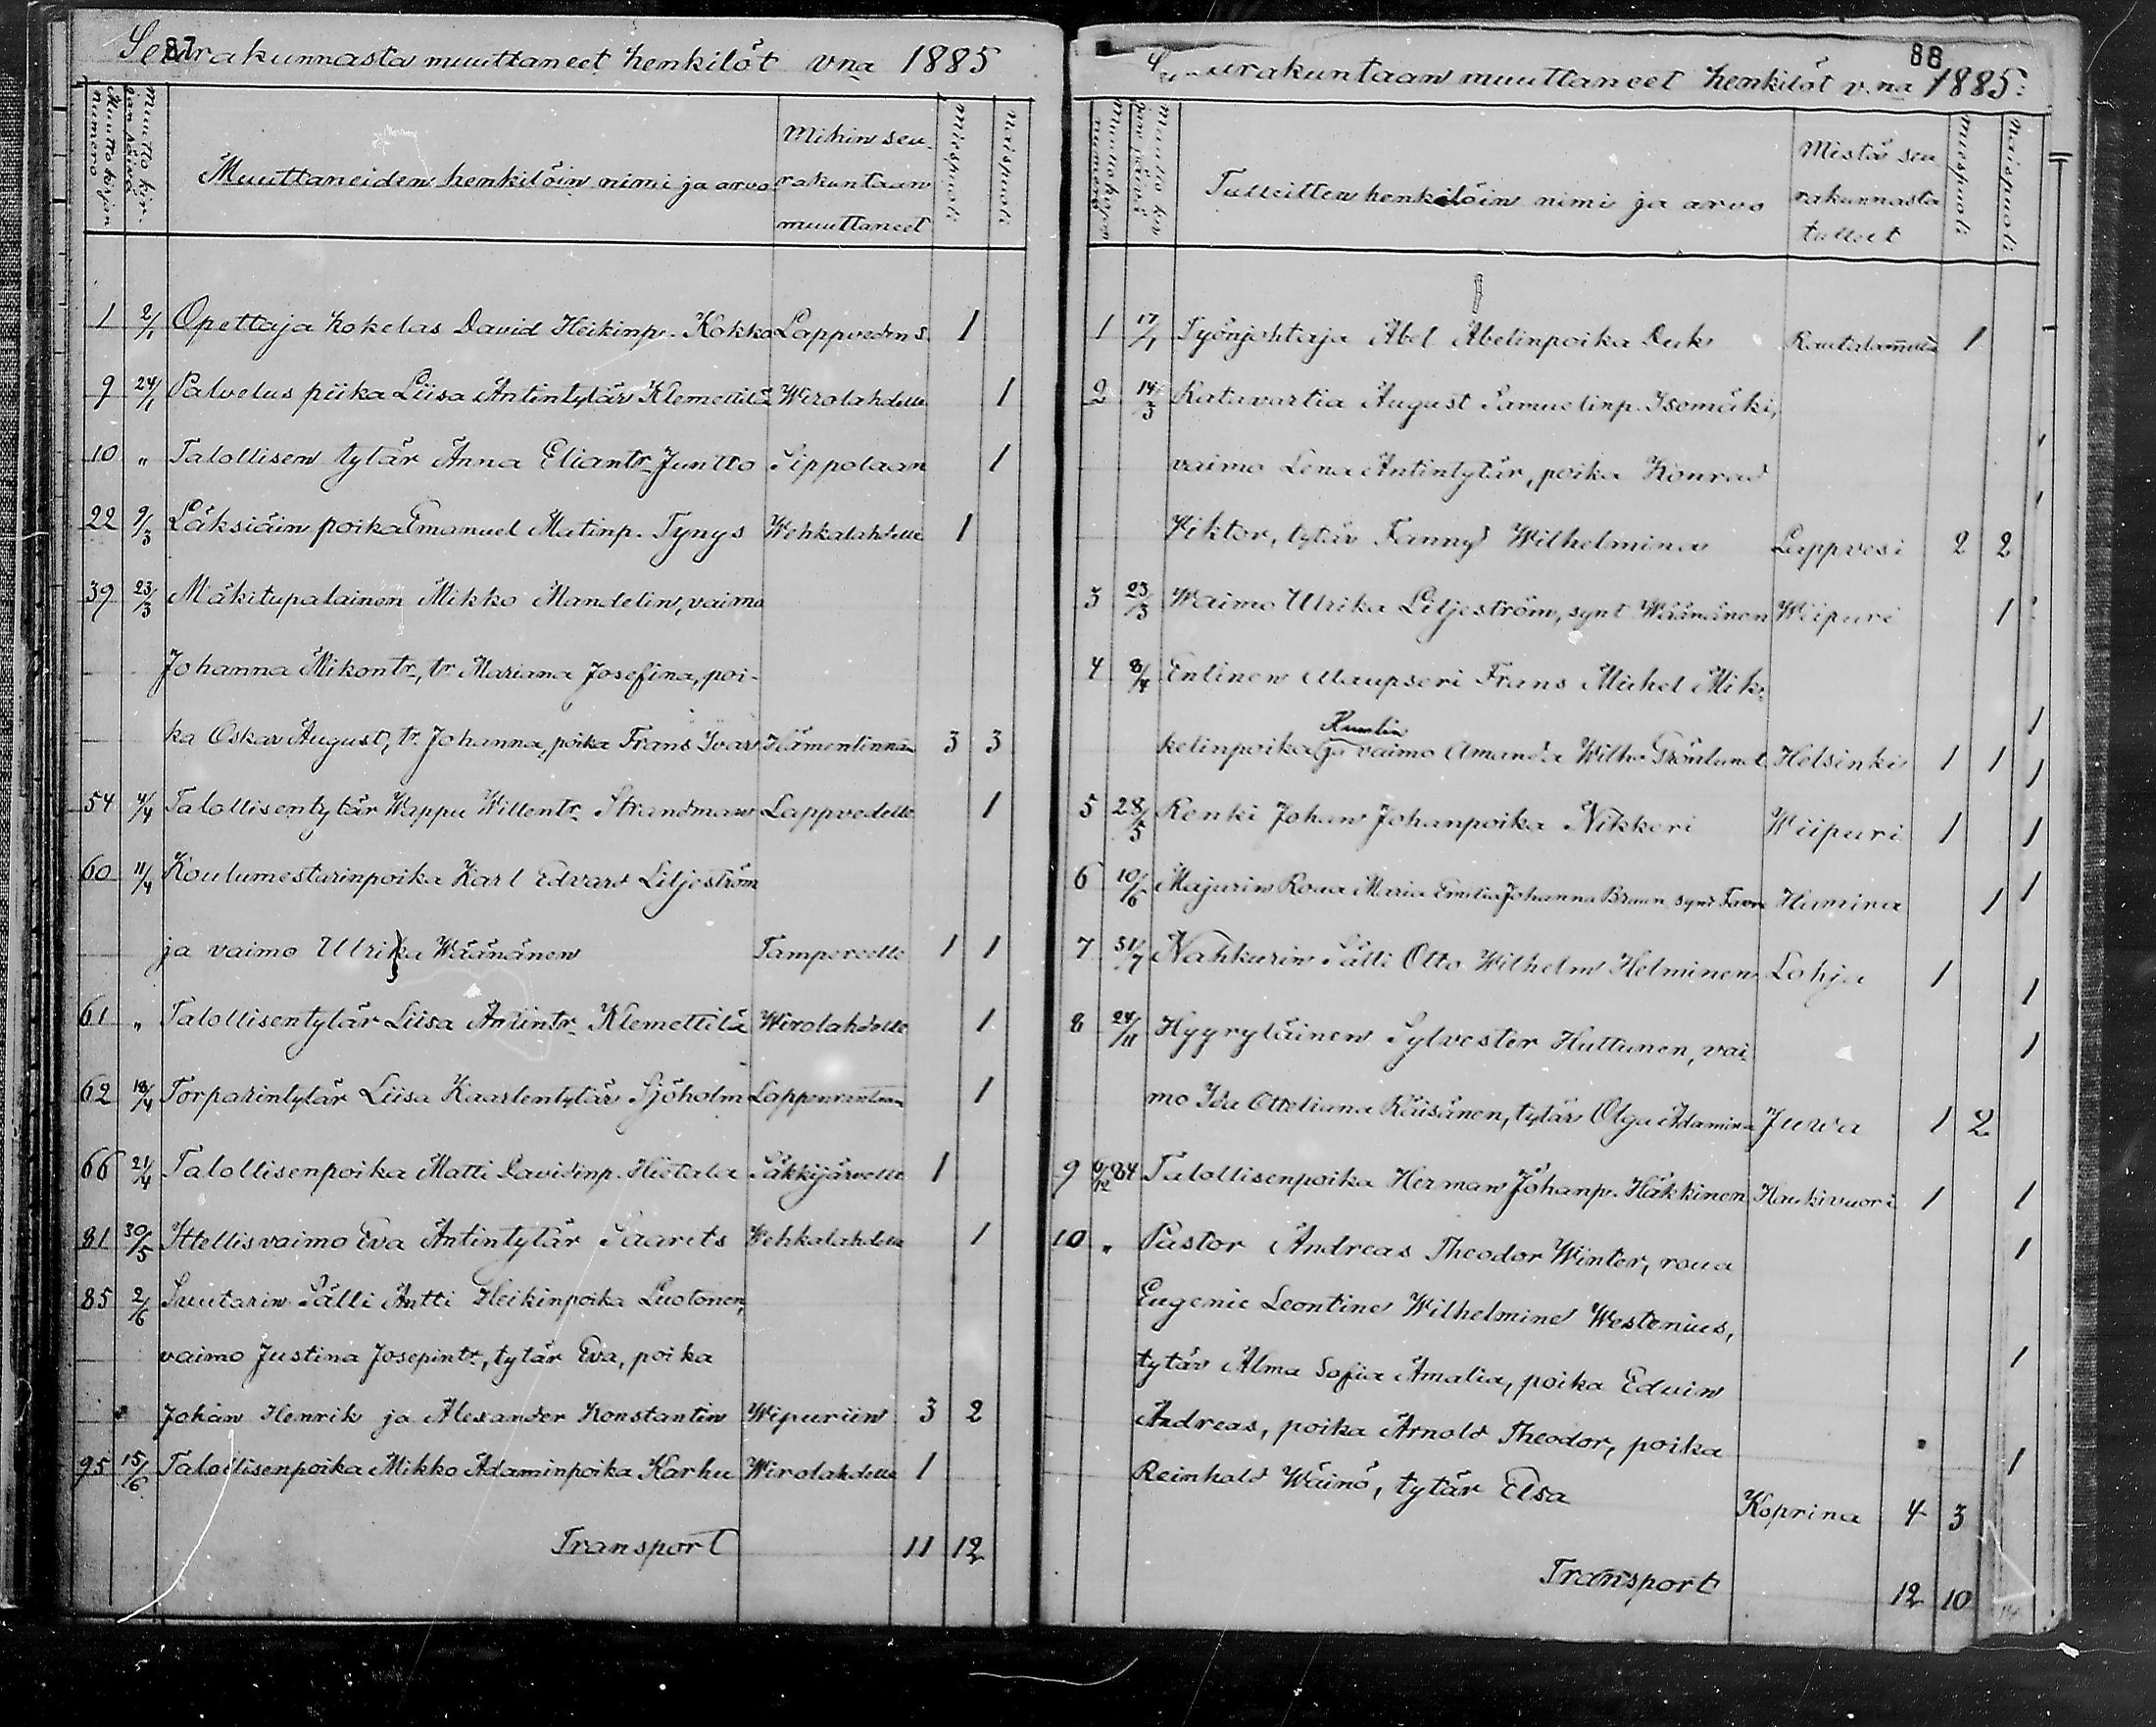 87
Seurakunnasta muuttaneet henkilöt vna 1885
Muuttokirjan numero
Muutto kirjan päivä
Muuttaneiden henkilöin nimi ja arvo
Mihin seurakuntaan muuttaneet
Miespuoli
Naispuoli
1 2/1 Opettaja kokelas David Heikinp. Kokko Lappveden s. 1
9 24/1 Palvelus piika Liisa Antintytär Klemettilä Wirolahdelle 1
10 " Talollisen tytär Anna Eliantr Juntto Sippolaan 1
22 9/3 Läksiäin poika Emanuel Matinp. Tynys Wehkalahdelle 1
39 23/3 Mäkitupalainen Mikko Mandelin, vaimo
Johanna Mikontr, tr Mariana Josefina, poi-
ka Oskar August, tr. Johanna, poika Frans Ivar Hämenlinnan 3 3
54 4/4 Talollisentytär Wappu Willentr Strandman Lappvedelle 1
60 11/4 Koulumestarinpoika Karl Edvard Liljeström
ja vaimo Ulrika Wäänänen Tampereelle 1 1
61 " Talollisentytär Liisa Antintr Klemettilä Wirolahdelle 1
62 18/4 Torparintytär Liisa Kaarlentytär Sjöholm Lappenrantaan 1
66 21/4 Talollisenpoika Matti Davidinp. Hietala Säkkijärvelle 1
81 30/5 Ittellisvaimo Eva Antintytär Saarits Wehkalahdelle 1
85 2/6 Suutarin Sälli Antti Heikinpoika Luotonen,
vaimo Justina Josepintr, tytär Eva, poika
Johan Henrik ja Alexander Konstantin Wipuriin 3 2
95 15/6 Talollisenpoika Mikko Adaminpoika Karhu Wirolahdelle 1
Transport 11 12
88
Seurakuntaan muuttaneet henkilöt v.na 1885:
Muuttokirjan numero
Muutto kirjan päivä
Tulleitten henkilöin nimi ja arvo
Mistä seurakunnasta tulleet
Miespuoli
Naispuoli
1 17/1 Työnjohtaja Abel Abelinpoika Rautalammilta 1
2 14/3 Ratavartia August Samuelinp. Isomäki,
vaimo Lena Antintytär, poika Konrad
Viktor, tytär Fanny Wilhelmina Lappvesi 2 2
3 23/3 Waimo Ulrika Liljeström, synt Wäänänen Wiipuri 1
4 8/4 Entinen Frans Mikel Mik-
kelinpoika ja vaimo Amanda Wilh. Grönlund Helsinki 1 1
5 28/5 Renki Johan Johanpoika Nikkeri Wiipuri 1
6 10/6 Majurin Roua Maria Emilia Johanna Bruun synt Hamina 1
7 31/7 Nahkurin Sälli Otto Wilhelm Helminen Lohja 1
8 24/11 Hyyryläinen Sylvester Huttunen, vai
mo Ida Otteliana Räisänen, tytär Olga Adamina Juwa 1 2
9 /12 84 Talollisenpoika Herman Johanp. Häkkinen Haukivuori 1
10 " Pastor Andreas Theodor Winter, roua
Eugenie Leontine Wilhelmine Westenius,
tytär Alma Sofia Amalia, poika Edvin
Andreas, poika Arnold Theodor, poika
Reinhold Wäinö, tytär Elsa Koprina 4 3
Transport 12 10